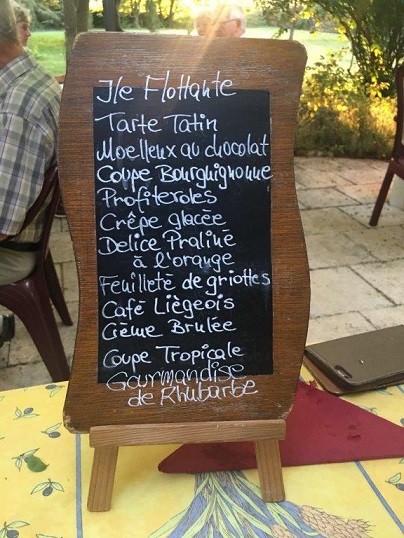 Ile Flottante
Tarte Tatin
Moelleux au chocolat
Coupe Bourguignonne
Profiteroles
Crêpe glacée
Délice Praliné
à l'orange
Feuilleté de griottes
Café Liègeois
Crème Brulée
Coupe Tropicale
Gourmandise
de Rhubarbe